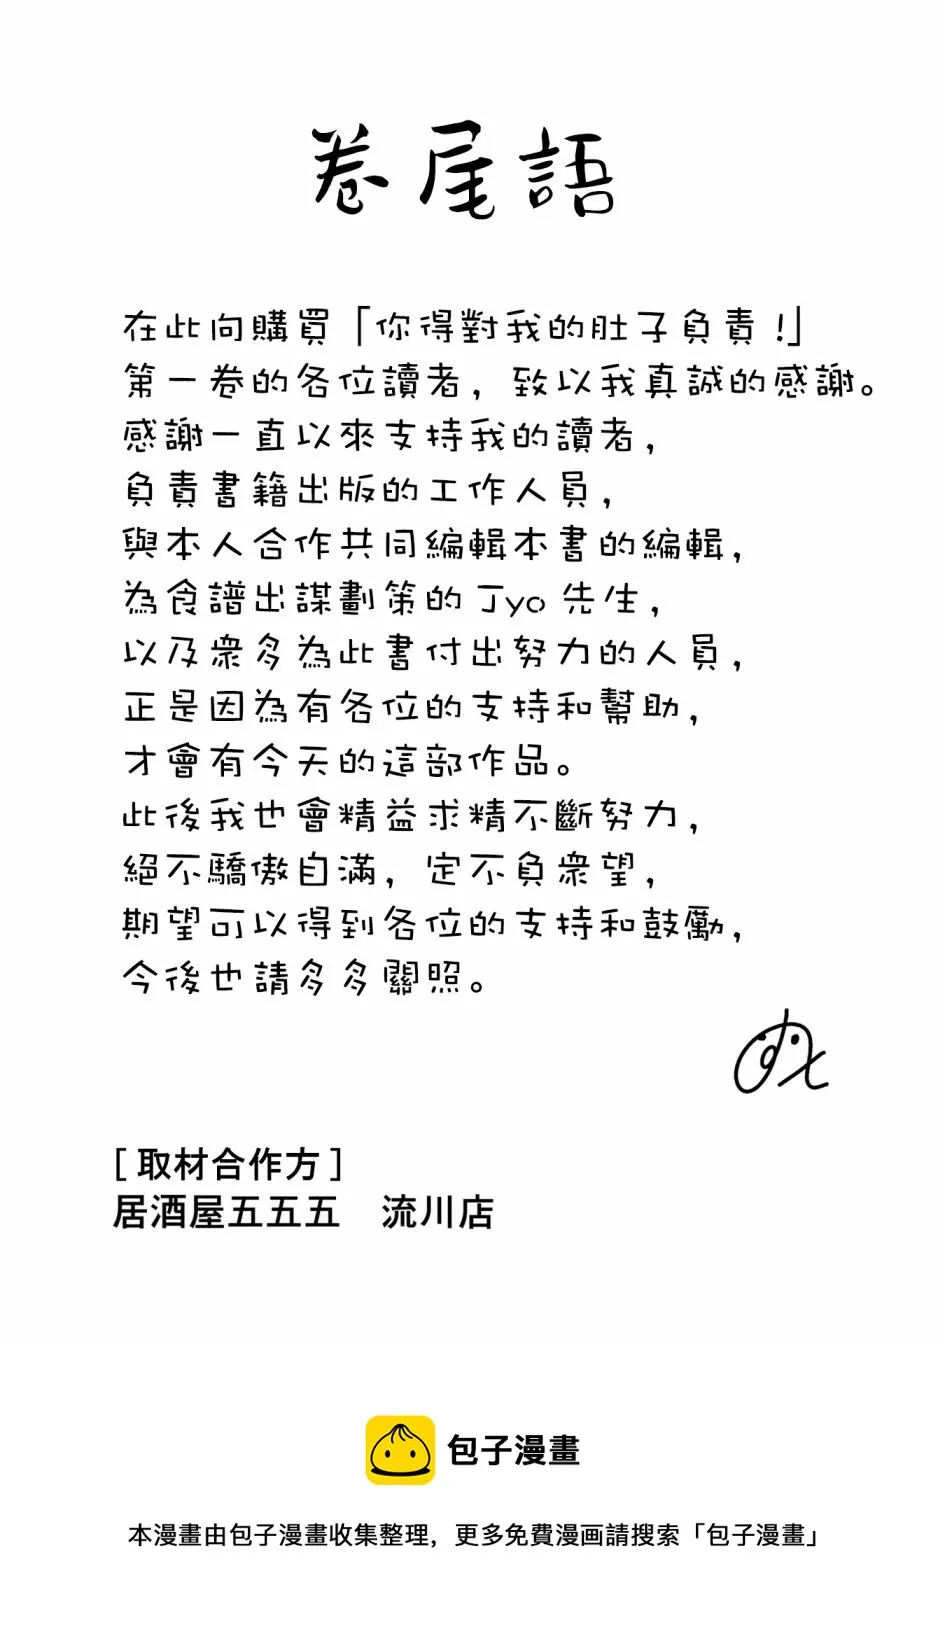 卷尾語
在此向購買「你得對我的肚子負責!」
第一卷的各位讀者，致以我真誠的感謝。
感謝一直以來支持我的讀者，
負責書籍出版的工作人員，
與本人合作共同編輯本書的編輯，
為食譜出謀劃策的Jyo先生，
以及眾多為此書付出努力的人員，
正是因為有各位的支持和幫助，
才會有今天的這部作品。
此後我也會精益求精不斷努力，
絕不驕傲自滿，定不負眾望，
期望可以得到各位的支持和鼓勵，
今後也請多多關照。
[取材合作方]
居酒屋五五五　流川店
包子漫畫
本漫畫由包子漫畫收集整理，更多免費漫画請搜索「包子漫畫」